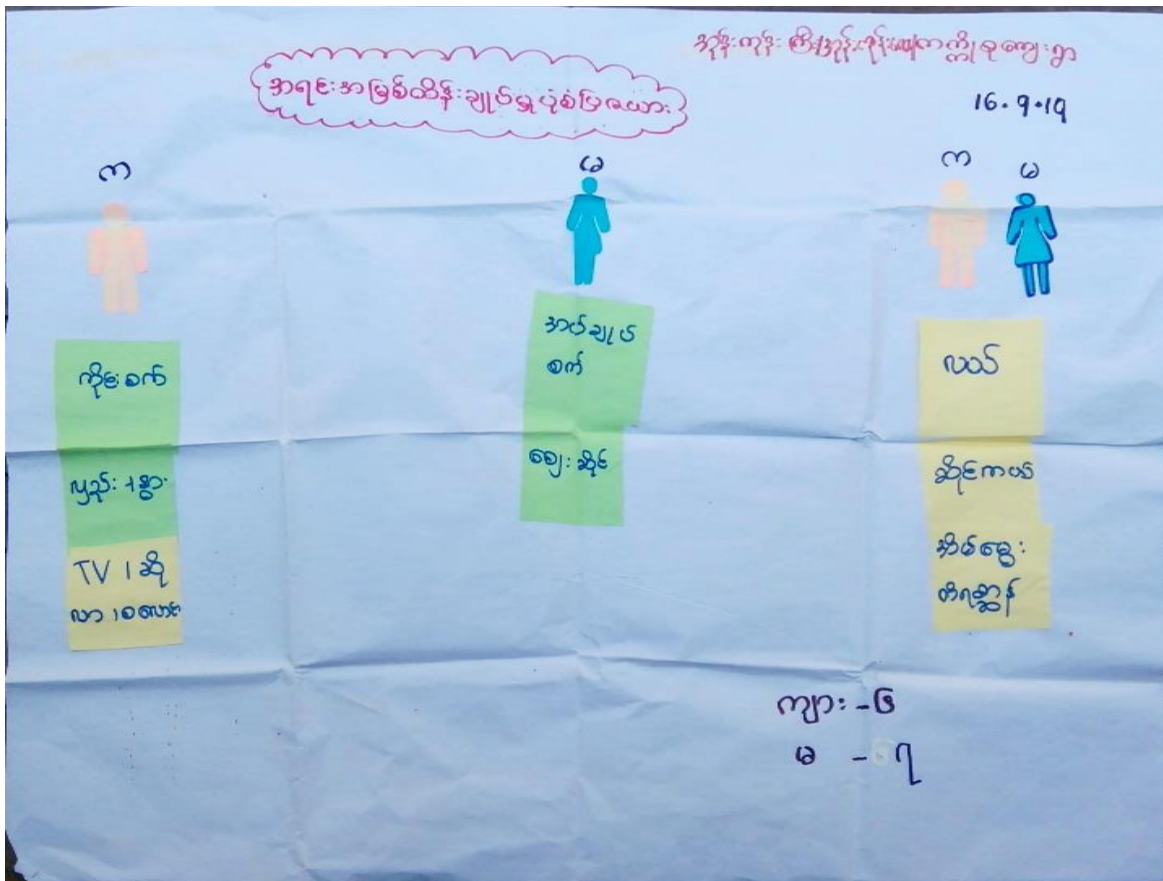 အုန်းကုန်း ကြီး၊အုန်းကုန်းလေး ကက္ကိုစုကျေးရွာ
အရင်းအမြစ်ထိန်းချုပ်မှုပုံစံပြဇယား
16.9.19
က
မ
က
မ
ကိုင်းစက်
လှည်း၊နွား
TV ၊ဆို
လာ၊စလောင်း
အပ်ချုပ်
စက်
ဈေးဆိုင်
လယ်
ဆိုင်ကယ်
အိမ်မွေး
တိရစ္ဆာန်
ကျား - ၆
မ - ၇